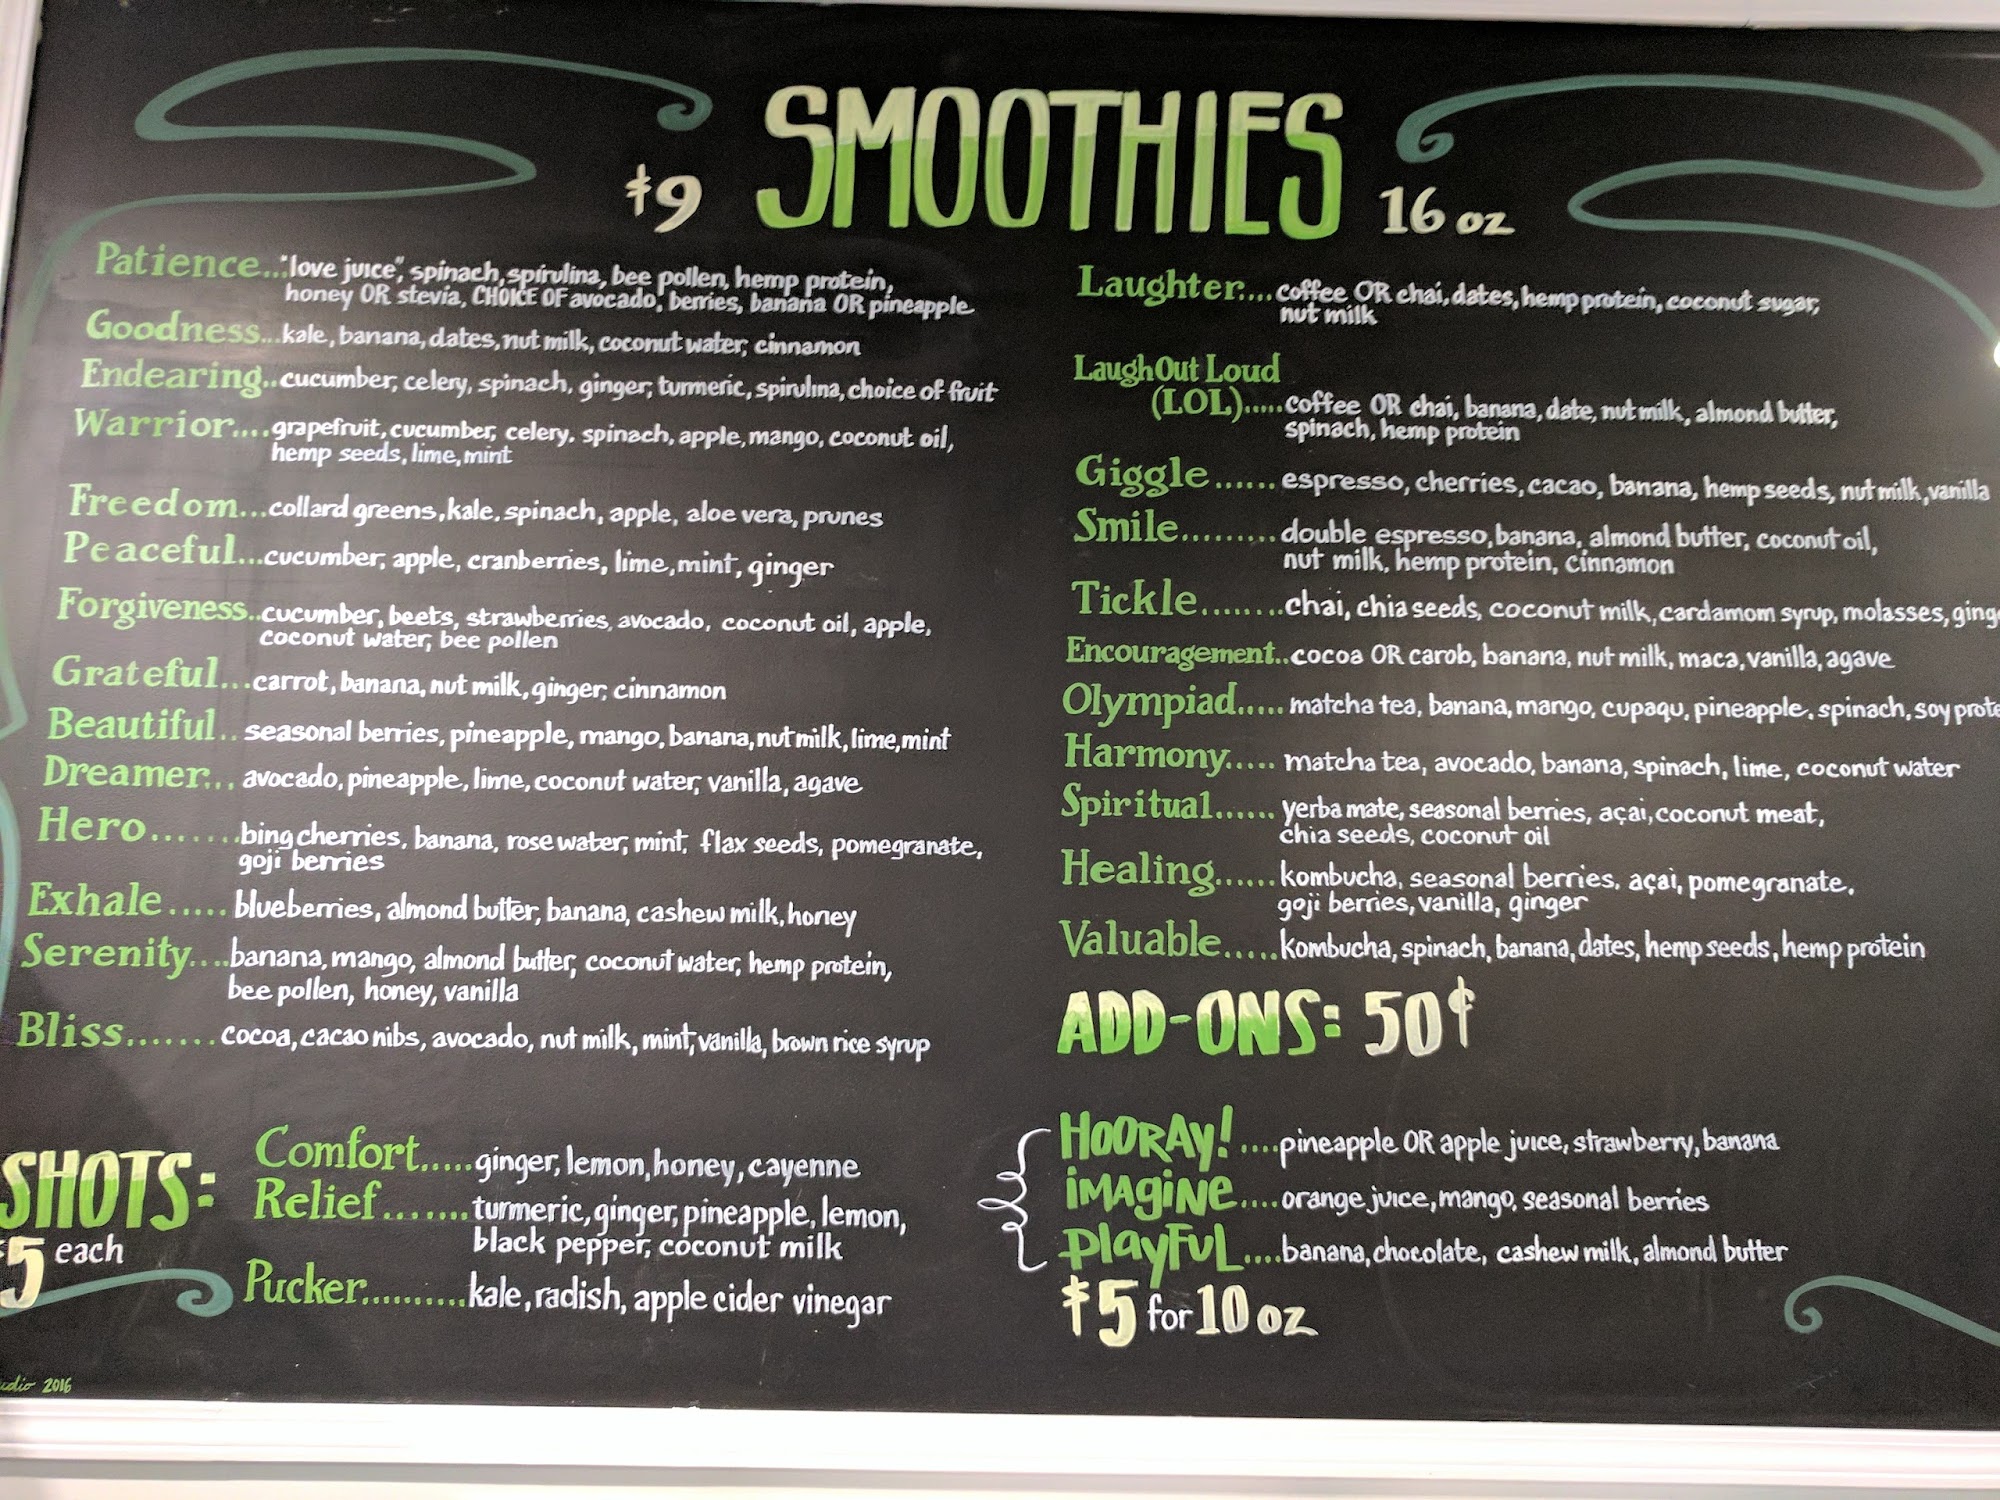 $9 SMOOTHIES 16 oz
Patience..."love juice", spinach, spirulina, bee pollen, hemp protein,
honey OR stevia, CHOICE OF avocado, berries, banana OR pineapple
Goodness...kale, banana, dates, nut milk, coconut water, cinnamon
Endearing..cucumber, celery, spinach, ginger, turmeric, spirulina, choice of fruit
Warrior....grapefruit, cucumber, celery. spinach, apple, mango, coconut oil,
hemp seeds, lime, mint
Freedom...collard greens, kale, spinach, apple, aloe vera, prunes
Peaceful...cucumber, apple, cranberries, lime, mint, ginger
Forgiveness..cucumber, beets, strawberries, avocado, coconut oil, apple,
coconut water, bee pollen
Grateful...carrot, banana, nut milk, ginger, cinnamon
Beautiful..seasonal berries, pineapple, mango, banana, nut milk, lime, mint
Dreamer...avocado, pineapple, lime, coconut water, vanilla, agave
Hero.......bing cherries, banana, rose water, mint, flax seeds, pomegranate,
goji berries
Exhale.....blueberries, almond butter, banana, cashew milk, honey
Serenity....banana, mango, almond butter, coconut water, hemp protein,
bee pollen, honey, vanilla
Bliss.......cocoa, cacao nibs, avocado, nut milk, mint, vanilla, brown rice syrup
Laughter....coffee OR chai, dates, hemp protein, coconut sugar,
nut milk
Laugh Out Loud
(LOL).....coffee OR chai, banana, date, nut milk, almond butter,
spinach, hemp protein
Giggle......espresso, cherries, cacao, banana, hemp seeds, nut milk, vanilla
Smile.........double espresso, banana, almond butter, coconut oil,
nut milk, hemp protein, cinnamon
Tickle........chai, chia seeds, coconut milk, cardamom syrup, molasses,
Encouragement..cocoa OR carob, banana, nut milk, maca, vanilla, agave
Olympiad.....matcha tea, banana, mango, cupaqu, pineapple, spinach, soy
Harmony.....matcha tea, avocado, banana, spinach, lime, coconut water
Spiritual......yerba mate, seasonal berries, açai, coconut meat,
chia seeds, coconut oil
Healing......kombucha, seasonal berries, açai, pomegranate,
goji berries, vanilla, ginger
Valuable.....kombucha, spinach, banana, dates, hemp seeds, hemp protein
ADD-ONS: 50¢
SHOTS:
$5 each
Comfort.....ginger, lemon, honey, cayenne
Relief.......turmeric, ginger, pineapple, lemon,
black pepper, coconut milk
Pucker..........kale, radish, apple cider vinegar
HOORAY!....pineapple OR apple juice, strawberry, banana
iMAgiNe....orange juice, mango, seasonal berries
PlAyFuL....banana, chocolate, cashew milk, almond butter
$5 for 10 oz
2016